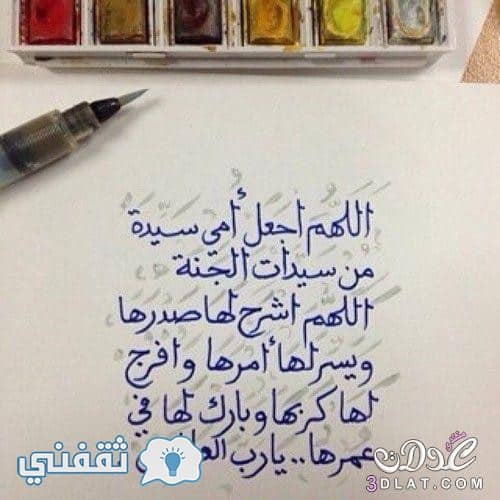 اللهم اجعل أمي سيدة
من سيدات الجنة
اللهم اشرح لها صدرها
ويسر لها أمرها وافرج
لها كربها وبارك لها في
عمرها.. يارب
ثقفني
عدلات
3DLAT.COM